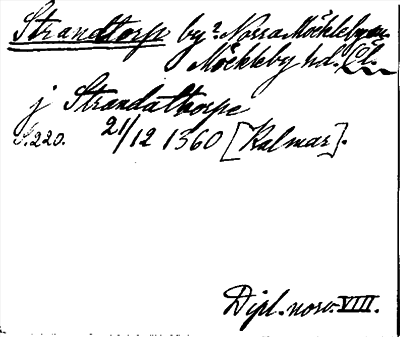 Strandtorp by? Norra Möckleby sn
Möckleby hd. Öl.
j Strandathorpe
S. 220. 21/12 1360 [Kalmar].
Dipl. norv. VIII.